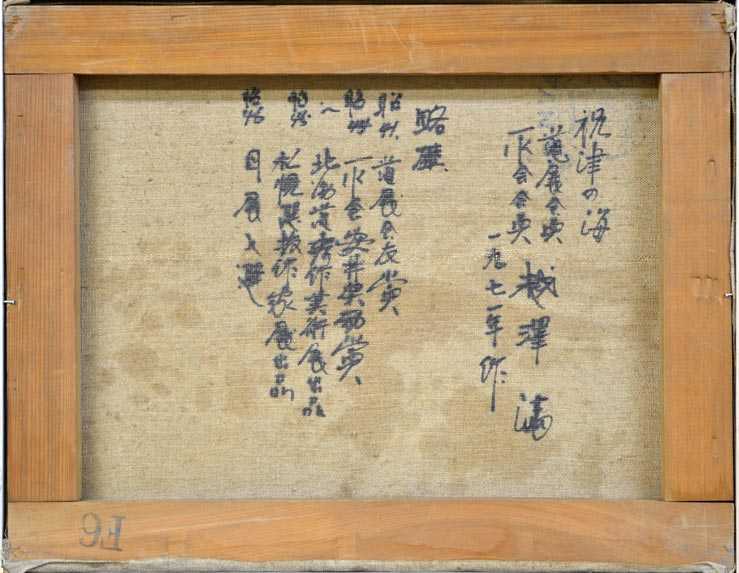 祝津の海
道展会員
一水会会員
越澤満
一九七一年作
略歴
昭41. 道展会友賞
昭44 一水会安井奨励賞
〃 北海道秀作美術展出品
昭45 札幌選抜作家展出品
昭46 日展入選
F6